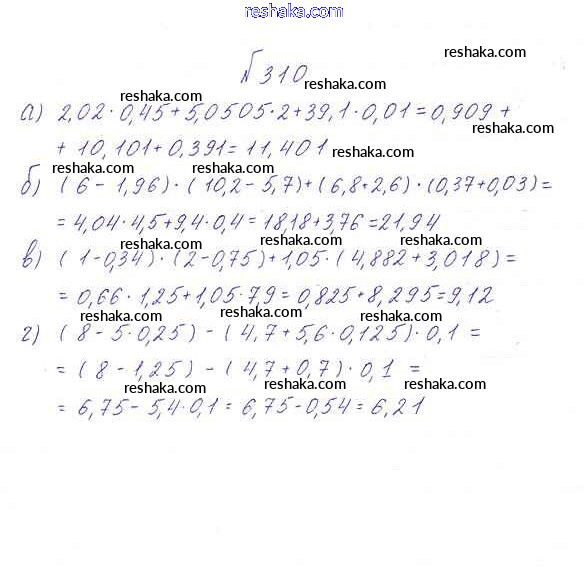 reshaka.com
№310
reshaka.com
reshaka.com
reshaka.com
а) 2,02·0,45+5,0505·2+39,1·0,01=0,909+
reshaka.com
+10,101+0,391=11,401
reshaka.com
reshaka.com
reshaka.com
б) (6-1,96)·(10,2-5,7)+(6,8+2,6)·(0,37+0,03)=
=4,04·4,5+9,4·0,4=18,18+3,76=21,94
reshaka.com
reshaka.com
reshaka.com
в) (1-0,34)·(2-0,75)+1,05·(4,882+3,018)=
=0,66·1,25+1,05·7,9=0,825+8,295=9,12
reshaka.com
reshaka.com
reshaka.com
г) (8-5·0,25)-(4,7+5,6·0,125)·0,1=
=(8-1,25)-(4,7+0,7)·0,1=
reshaka.com
reshaka.com
reshaka.com
=6,75-5,4·0,1=6,75-0,54=6,21